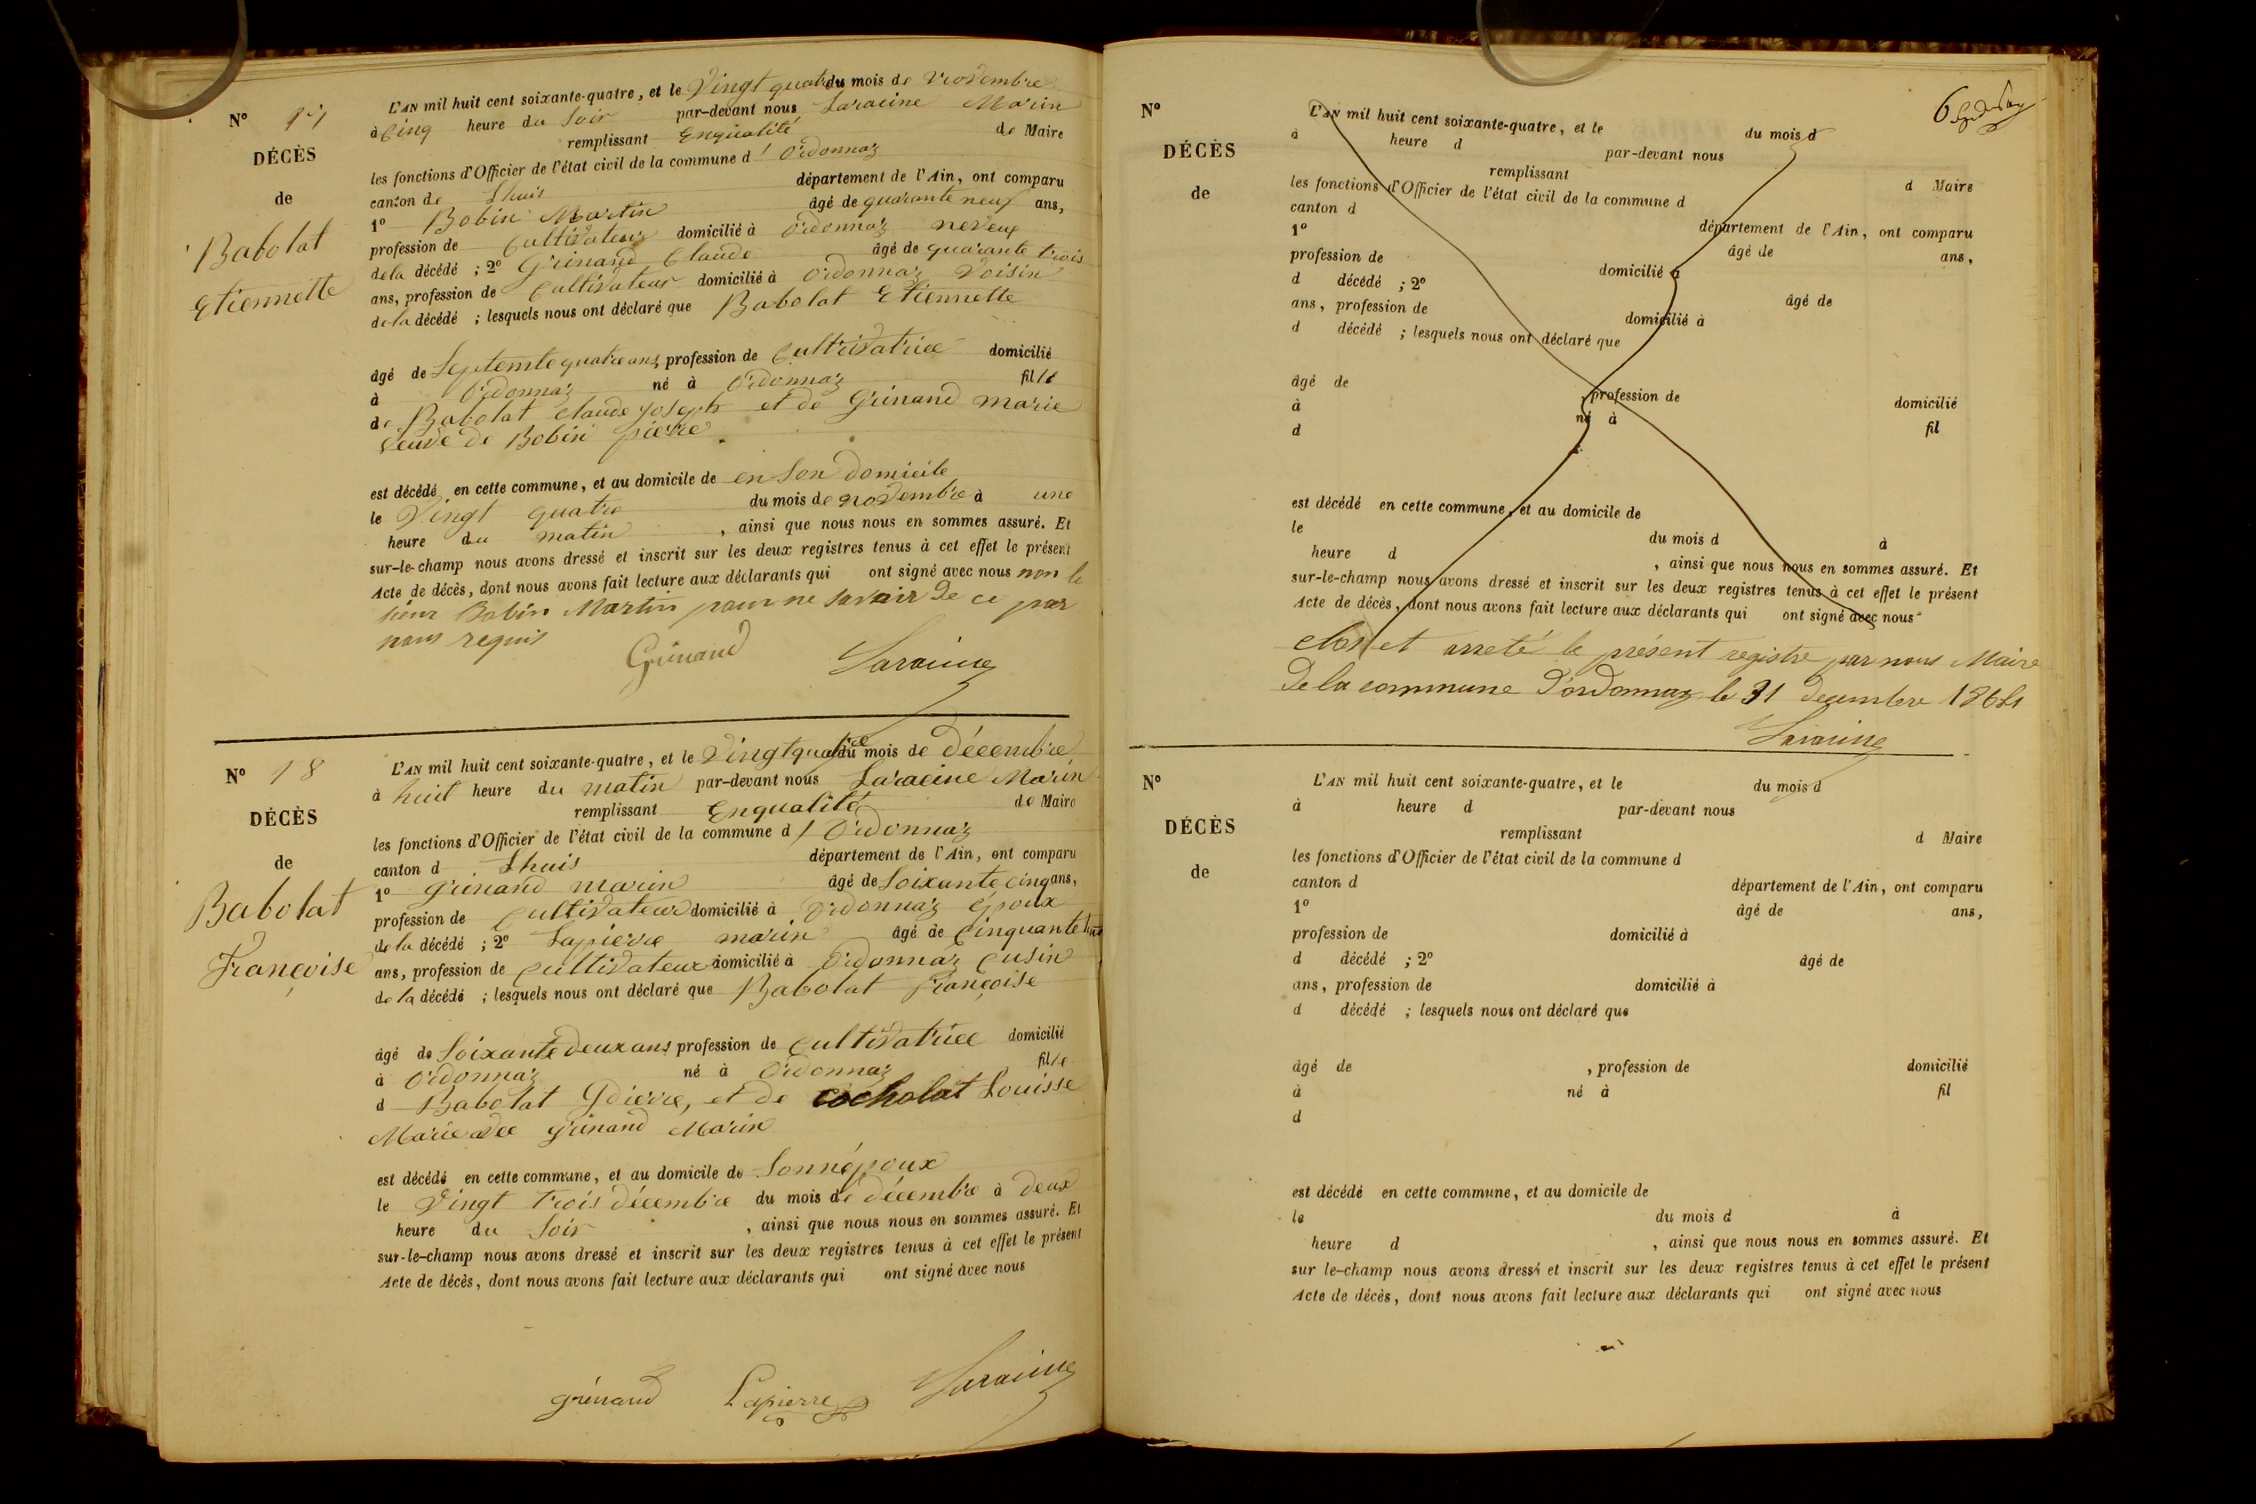 N° 17
DÉCÈS
de
Babolat
Etiennette
L'AN mil huit cent soixante-quatre, et le Vingt quatre du mois de Novembre
à Cinq heure du Soir par-devant nous Laracine Marin
remplissant Enqualité de Maire
les fonctions d'Officier de l'état civil de la commune d'Ordonnaz
canton de Lhuis département de l'Ain, ont comparu
1° Bobin Martin âgé de quarante neuf ans,
profession de Cultivateur domicilié à Ordonnaz neveux
de la décédé ; 2° Grinand Claude âgé de quarante trois
ans, profession de Cultivateur domicilié à Ordonnaz Voisin
de la décédé ; lesquels nous ont déclaré que Babolat Etiennette
âgé de Septente quatre ans, profession de Cultivatrice domicilié
à Ordonnaz né à Ordonnaz fille
de Babolat Claude Joseph et de Grinand marie
Veuve de Bobin pierre
est décédé en cette commune, et au domicile de en Son domicile
le Vingt quatre du mois de novembre à une
heure du matin , ainsi que nous nous en sommes assuré. Et
sur-le-champ nous avons dressé et inscrit sur les deux registres tenus à cet effet le présent
Acte de décès, dont nous avons fait lecture aux déclarants qui ont signé avec nous non le
sieur Bobin Martin pour ne savoir de ce par
nous requis
Grinand Laracine
N° 18
DÉCÈS
de
Babolat
Françoise
L'AN mil huit cent soixante-quatre, et le Vingt quatre du mois de décembre
à huit heure du matin par-devant nous Laracine Marin
remplissant Enqualité de Maire
les fonctions d'Officier de l'état civil de la commune d'Ordonnaz
canton d Lhuis département de l'Ain, ont comparu
1° Grinand marin âgé de Soixante cinq ans,
profession de Cultivateur domicilié à Ordonnaz époux
de la décédé ; 2° Lapierre marin âgé de Cinquante
ans, profession de Cultivateur domicilié à Ordonnaz Cusin
de la décédé ; lesquels nous ont déclaré que Babolat Françoise
âgé de Soixante deux ans profession de Cultivatrice domicilié
à Ordonnaz né à Ordonnaz fille
d Babolat Pierre, et de cocholat Louisse
Mariee avec Grinand Marin
est décédé en cette commune, et au domicile de Sonnépoux
le Vingt trois décembre du mois de décembre à deux
heure du Soir , ainsi que nous nous en sommes assuré. Et
sur-le-champ nous avons dressé et inscrit sur les deux registres tenus à cet effet le présent
Acte de décès, dont nous avons fait lecture aux déclarants qui ont signé avec nous
grinand Lapierre Laracine
6
N°
DÉCÈS
de
L'AN mil huit cent soixante-quatre, et le du mois d
à heure d par-devant nous
remplissant d Maire
les fonctions d'Officier de l'état civil de la commune d
canton d département de l'Ain, ont comparu
1° âgé de ans,
profession de domicilié à
d décédé ; 2° âgé de
ans, profession de domicilié à
d décédé ; lesquels nous ont déclaré que
âgé de , profession de domicilié
à né à fil
d
est décédé en cette commune, et au domicile de
le du mois d à
heure d , ainsi que nous nous en sommes assuré. Et
sur-le-champ nous avons dressé et inscrit sur les deux registres tenus à cet effet le présent
Acte de décès, dont nous avons fait lecture aux déclarants qui ont signé avec nous
clos et arreté le présent registre par nous Maire
De la commune d'ordonnaz le 31 decembre 1864
Laracine
N°
DÉCÈS
de
L'AN mil huit cent soixante-quatre, et le du mois d
à heure d par-devant nous
remplissant d Maire
les fonctions d'Officier de l'état civil de la commune d
canton d département de l'Ain, ont comparu
1° âgé de ans,
profession de domicilié à
d décédé ; 2° âgé de
ans, profession de domicilié à
d décédé ; lesquels nous ont déclaré que
âgé de , profession de domicilié
à né à fil
d
est décédé en cette commune, et au domicile de
le du mois d à
heure d , ainsi que nous nous en sommes assuré. Et
sur le-champ nous avons dressé et inscrit sur les deux registres tenus à cet effet le présent
Acte de décès, dont nous avons fait lecture aux déclarants qui ont signé avec nous